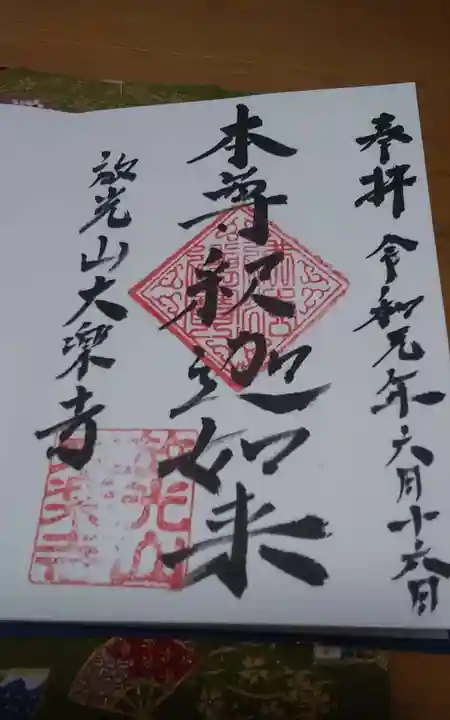 奉拝 令和元年六月十六日
本尊釈迦如来
放光山大楽寺